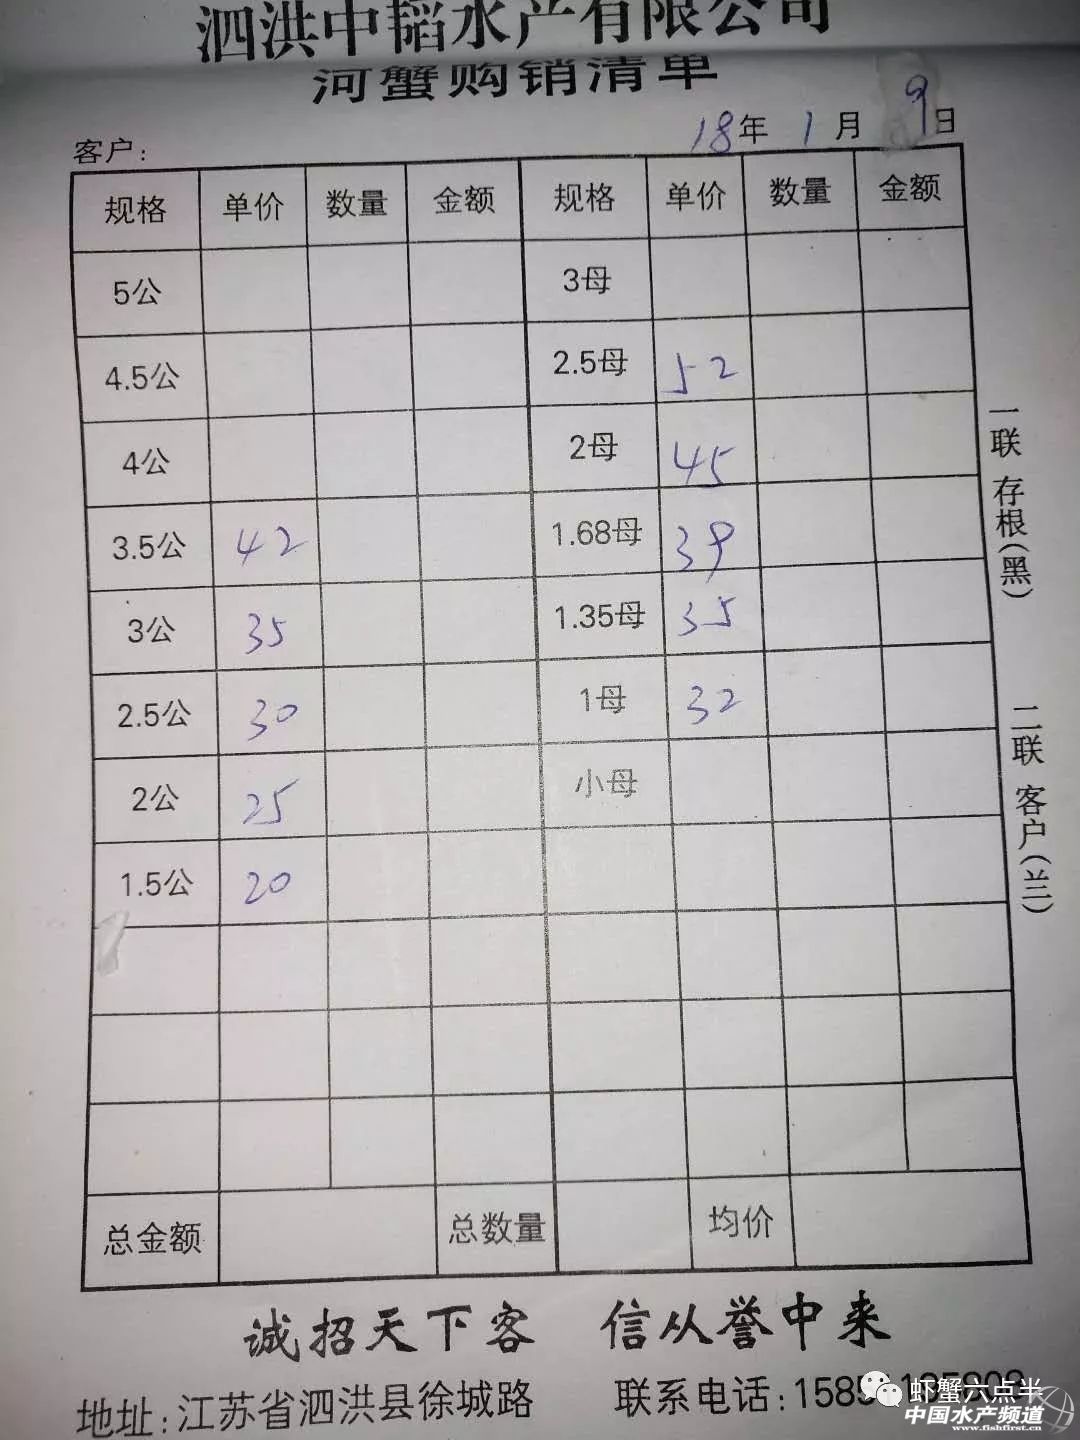 泗洪中韬水产有限公司
河蟹购销清单
客户: 18年 1月 9日
规格 单价 数量 金额 规格 单价 数量 金额
5公 3母
4.5公 2.5母 52
4公 2母 45
3.5公 42 1.68母 39
3公 35 1.35母 35
2.5公 30 1母 32
2公 25 小母
1.5公 20
总金额 总数量 均价
一联 存根(黑) 二联 客户(兰)
诚招天下客 信从誉中来
地址:江苏省泗洪县徐城路 联系电话:
虾蟹六点半
中国水产频道
www.fishfirst.cn